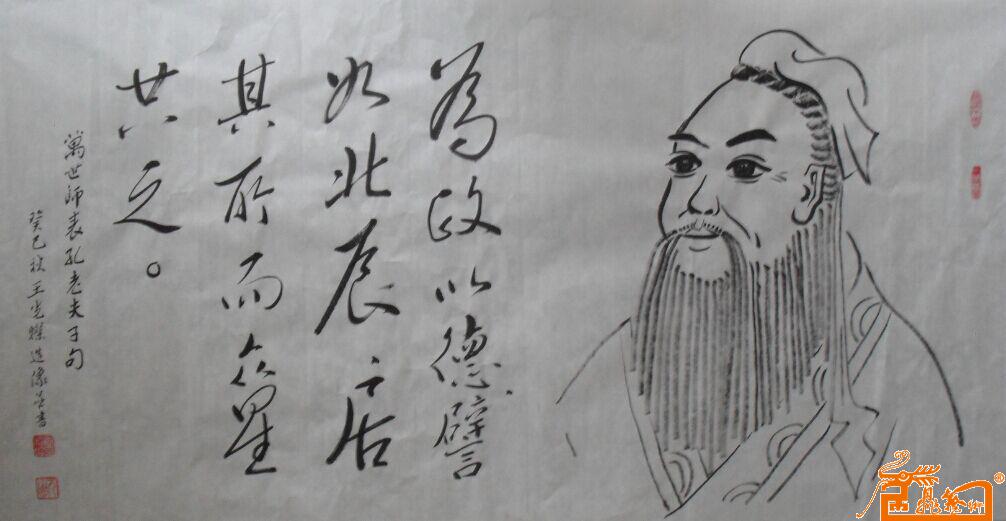 為政以德譬
如北辰居
其所而众星
共之。
萬世师表孔老夫子句
癸巳秋王光耀造像并書